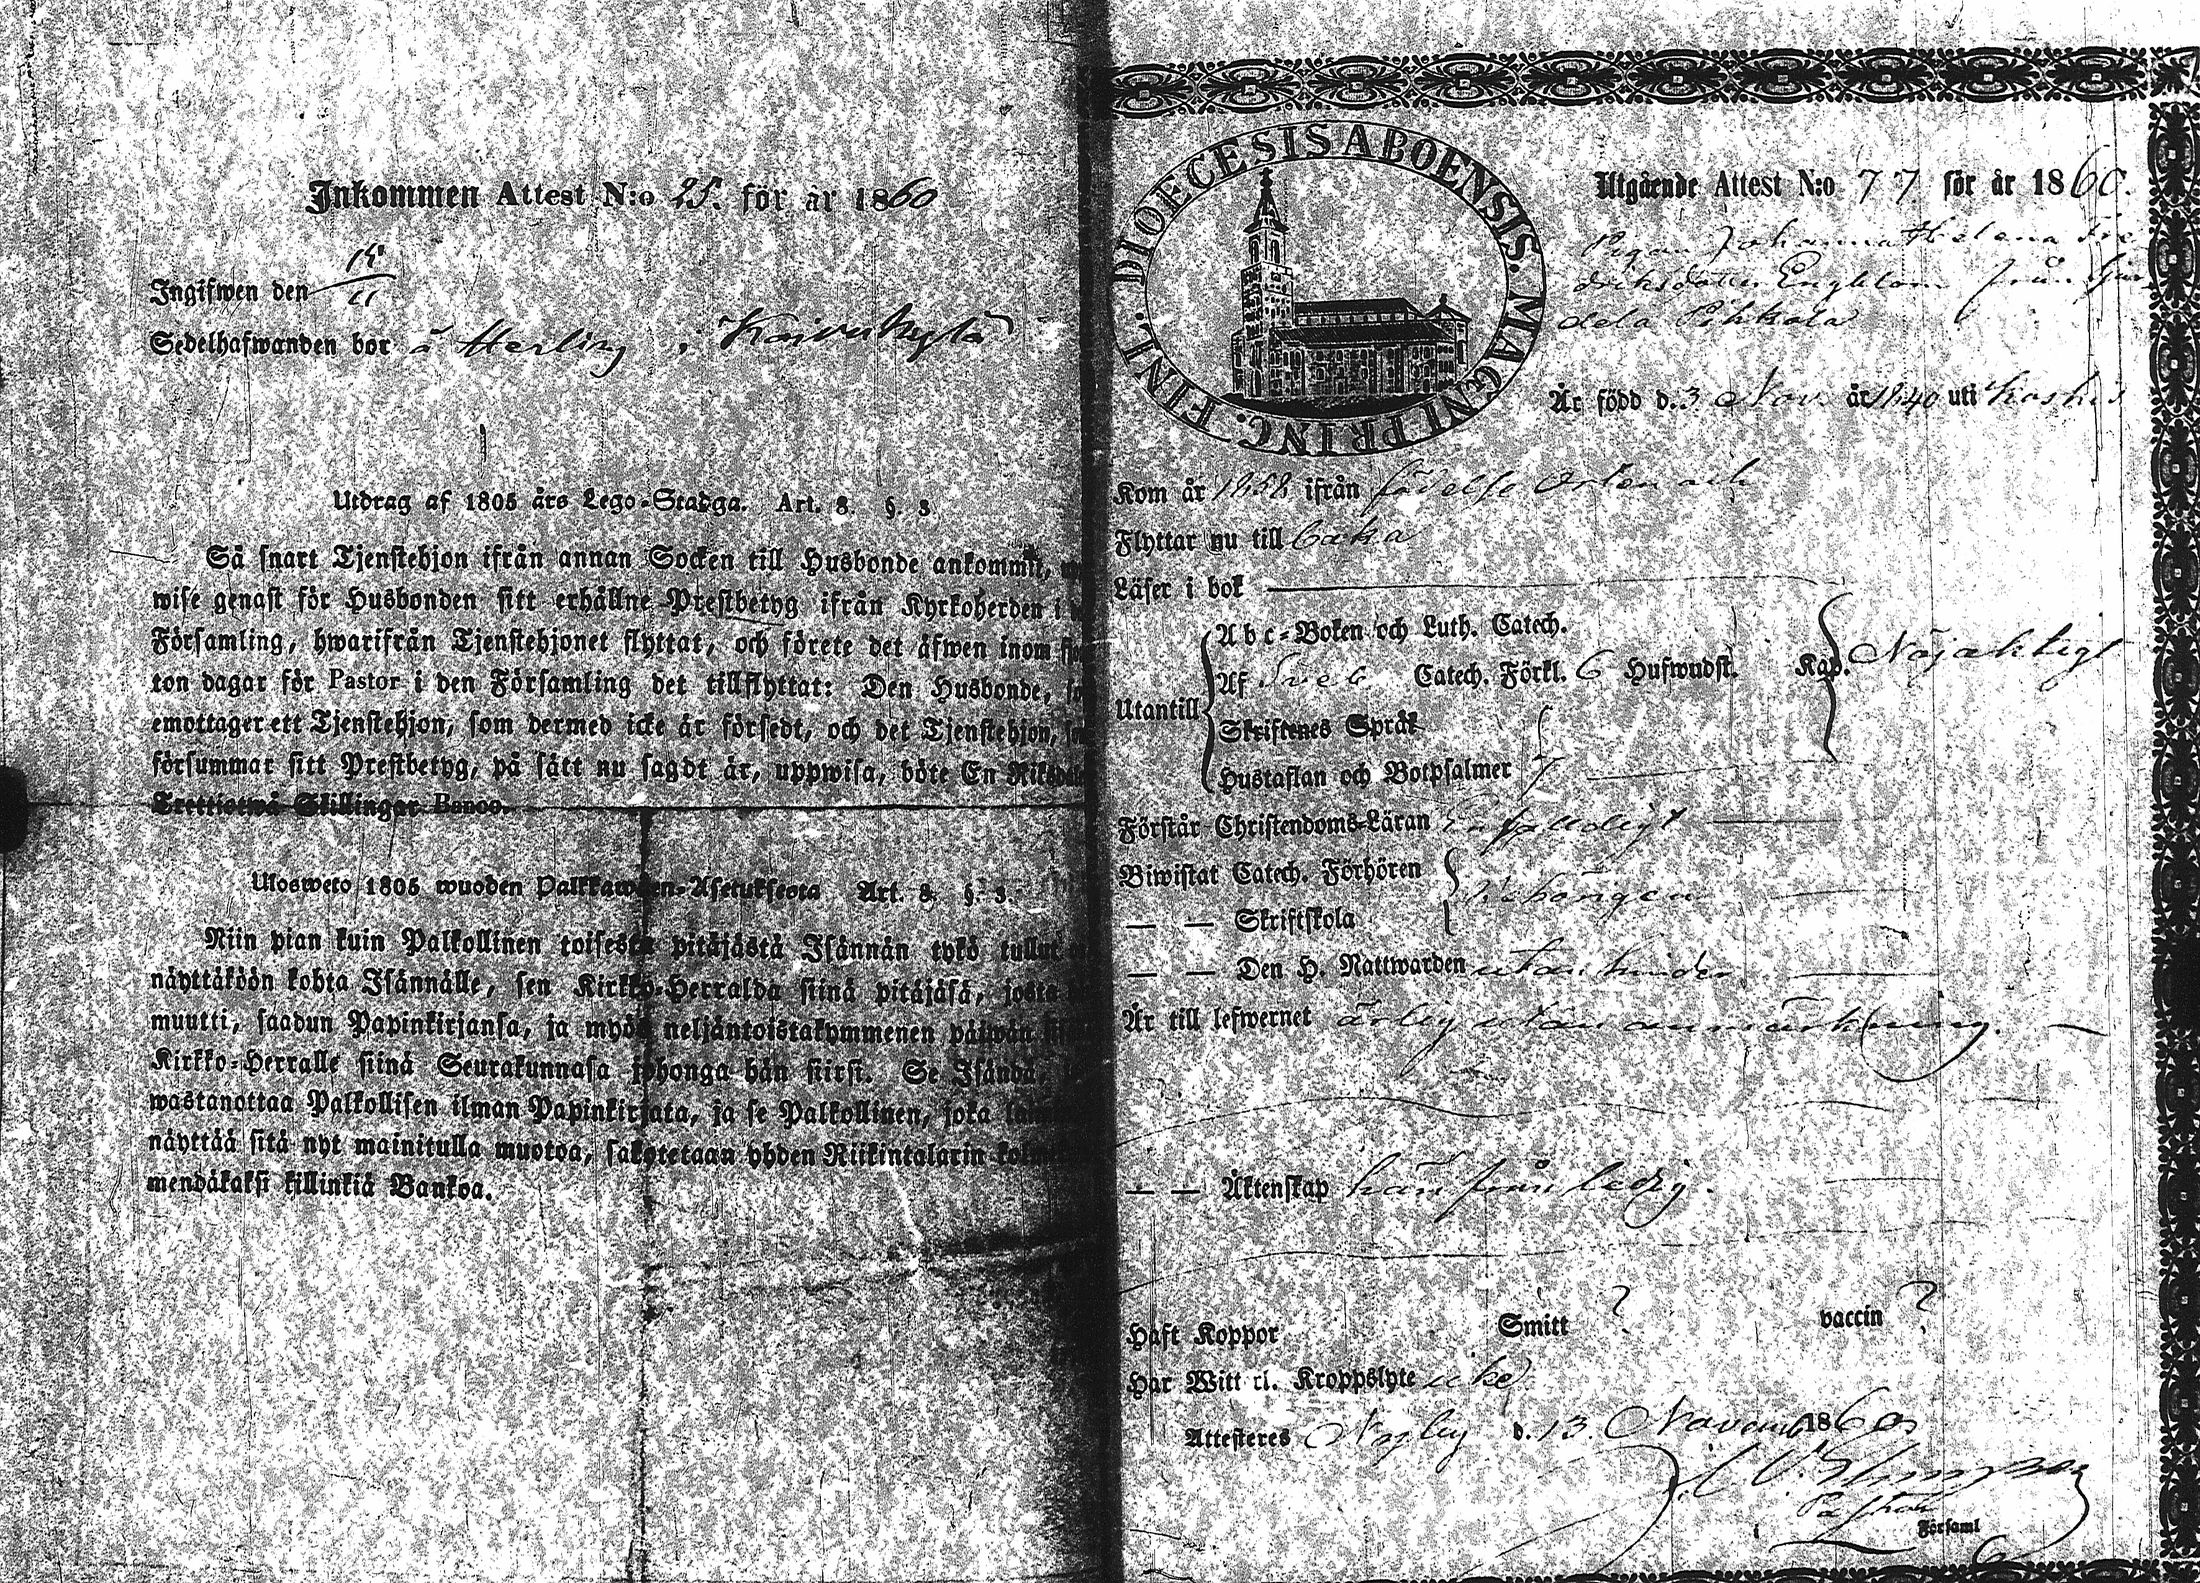 Inkommen Attest N:o 25. för år 1860
Ingifwen den 15/11
Sedelhafwanden bor å Herling i
Utdrag af 1805 års Lego-Stadga. Art. 8. §. 3.
Så snart Tjenstehjon ifrån annan Socken till Husbonde ankommit,
wise genast för Husbonden sitt erhållne Prestbetyg ifrån Kyrkoherden i
Församling, hwarifrån Tjenstehjonet flyttat, och förete det äfwen inom
ton dagar för Pastor i den Församling det tillflyttat: Den Husbonde,
emottager ett Tjenstehjon, som dermed icke är försedt, och det Tjenstehjon,
försummar sitt Prestbetyg, på sätt nu sagdt är, uppwisa, böte En
Trettiotwå Skillingar Banco.
Ulosweto 1805 wuoden Palkkawäen-Asetuksesta Art. 8. §. 3.
Niin pian kuin Palkollinen toisesta pitäjästä Isännän tykö tullut
näyttäköön kohta Isännälle, sen Kirkko-Herralda siinä pitäjäsä, josta
muutti, saadun Papinkirjansa, ja myös neljäntoistakymmenen päiwän
Kirkko-Herralle siinä Seurakunnasa johonga hän siirsi. Se Isändä,
wastanottaa Palkollisen ilman Papinkirjata, ja se Palkollinen, joka
näyttää sitä nyt mainitulla muotoa, sakotetaan yhden Riikintalarin
mendäkaksi killinkiä Bankoa.
DIOECESIS ABOENSIS. MAGNI PRINC. FINL.
Utgående Attest N:o 77 för år 1860.
Pigan Johanna Helena Fre
driksdotter Englom från
dela Pikkola
Är född d. 3 Nov. år 1840 uti Koskis
Kom år 1858 ifrån födelse Orten och
Flyttar nu till
Läser i bok
Utantill
Abc-Boken och Luth. Catech.
Af Sveb. Catech. Förkl. 6 Hufwudst. Kap. Nöjaktigt
Skriftenes Språk
Hustaflan och Botpsalmer
Förstår Christendoms-Läran
Biwistat Catech. Förhören
— — Skriftskola
— — Den H. Nattwarden utan hinder
Är till lefwernet ärlig utan anmärkning.
— — Äktenskap härifrån ledig.
Haft Koppor Smitt ? vaccin ?
Har Witt rl. Kroppslyte icke
Attesteres Nyby d. 13. Novemb 1860
Pastor
i Församl